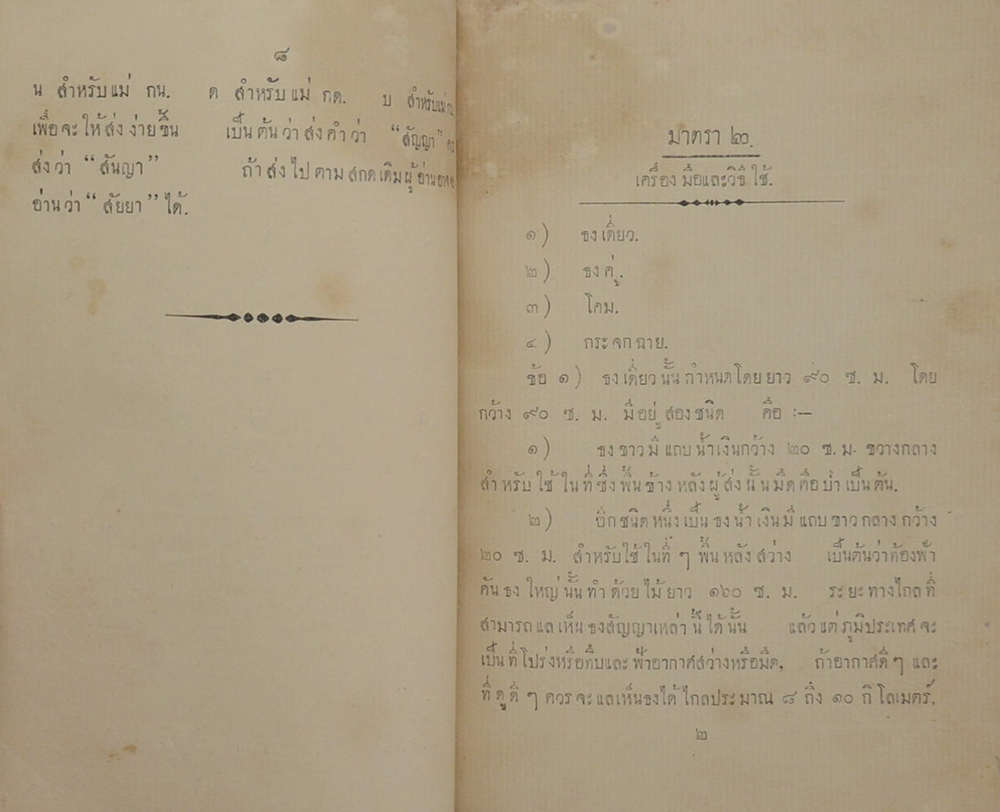 ๘
น สำหรับแม่ กน. ด สำหรับแม่ กด. บ สำหรับแม่
เพื่อจะให้ส่งง่ายขึ้น เป็นต้นว่าส่งคำว่า “สัญญา”
ส่งว่า “สันญา” ถ้าส่งไปตามสกดเดิมผู้อ่าน
อ่านว่า “สัยยา” ได้.
มาตรา ๒.
เครื่องมือและวิธีใช้.
๑) ธงเดี่ยว.
๒) ธงคู่.
๓) โคม.
๔) กระจกฉาย.
ข้อ ๑) ธงเดี่ยวนั้นกำหนดโดยยาว ๙๐ ซ. ม. โดย
กว้าง ๙๐ ซ. ม. มีอยู่สองชนิด คือ :—
๑) ธงขาวมีแถบน้ำเงินกว้าง ๒๐ ซ. ม. ขวางกลาง
สำหรับใช้ในที่ซึ่งพื้นข้างหลังผู้ส่งนั้นมืดคือป่าเป็นต้น.
๒) อีกชนิดหนึ่งเป็นธงน้ำเงินมีแถบขาวกลางกว้าง
๒๐ ซ. ม. สำหรับใช้ในที่ ๆ พื้นหลังสว่าง เป็นต้นว่าท้องฟ้า
คันธงใหญ่นั้นทำด้วยไม้ยาว ๑๖๐ ซ. ม. ระยะทางไกลที่
สามารถแลเห็นธงสัญญาเหล่านี้ได้นั้น แล้วแต่ภูมิประเทศจะ
เป็นที่โปร่งหรือทึบและฟ้าอากาศสว่างหรือมืด. ถ้าอากาศดี ๆ และ
ที่ดูดี ๆ ควรจะแลเห็นธงได้ไกลประมาณ ๘ ถึง ๑๐ กิโลเมตร์.
๒